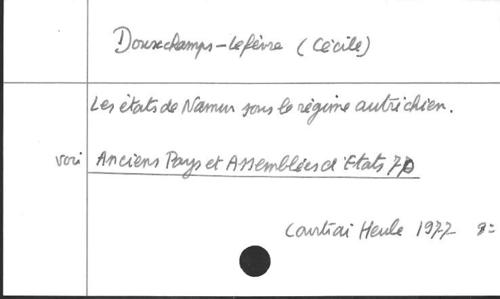 Douxchamps-Lefèvre (Cécile)
Les états de Namur sous le régime autrichien.
voir Anciens Pays et Assemblées d'Etats 70
Courtrai Heule 1977 8=